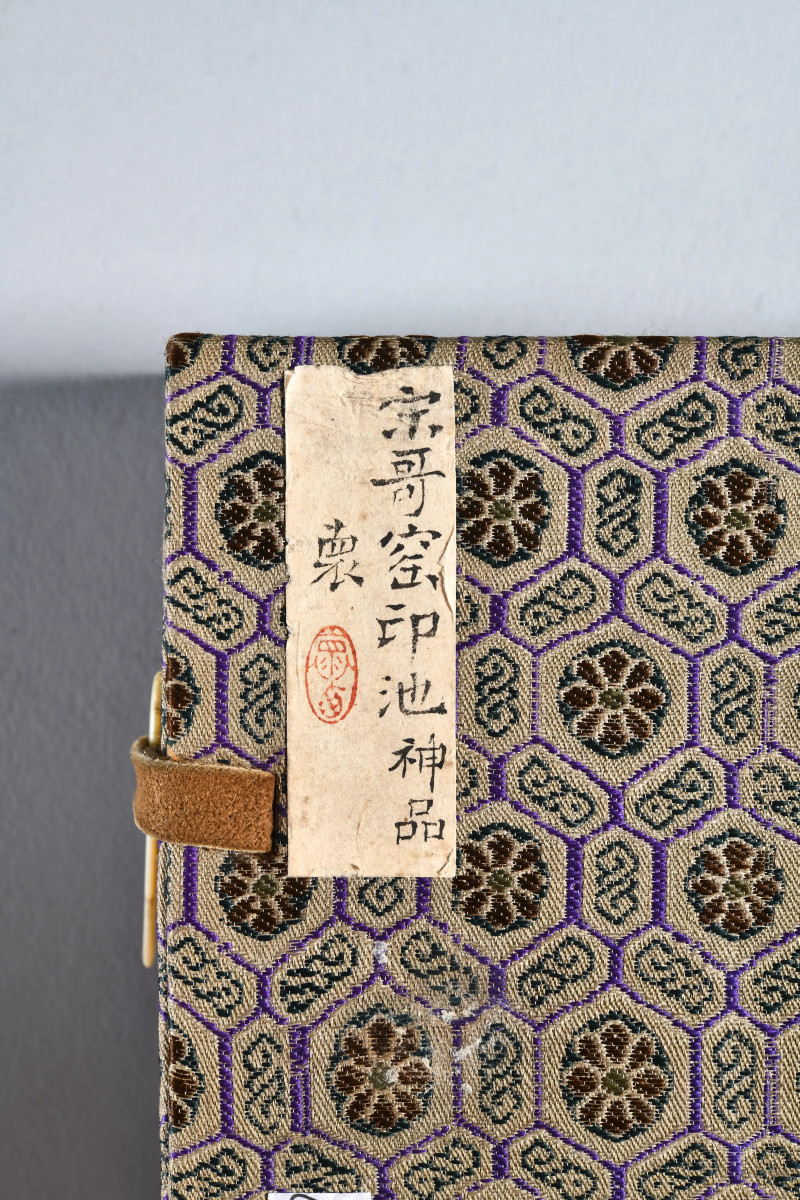 宋哥窑印池神品